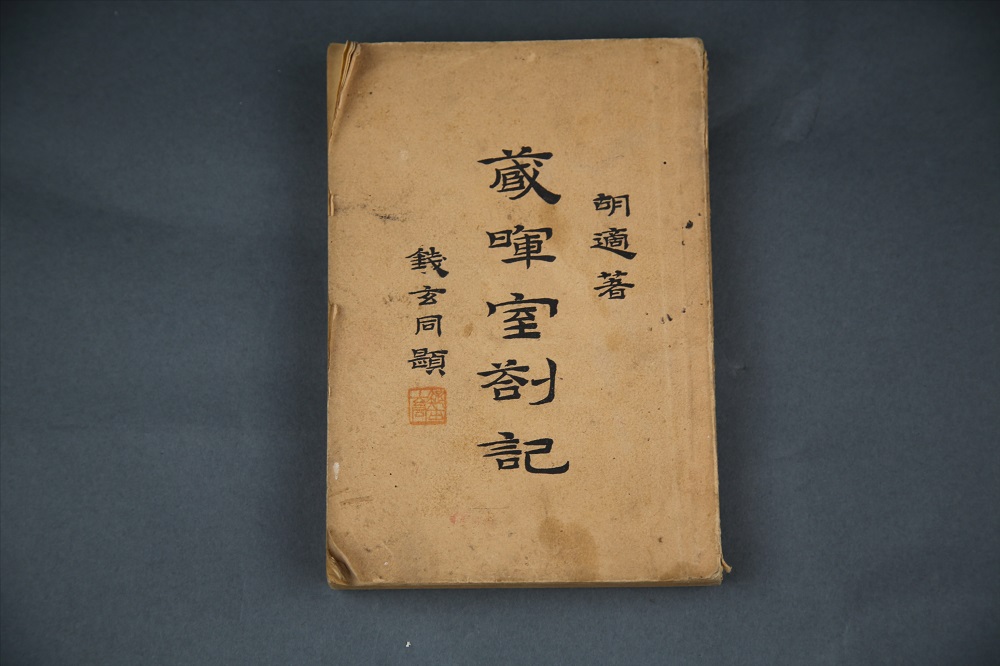 胡適著
藏暉室劄記
錢玄同題